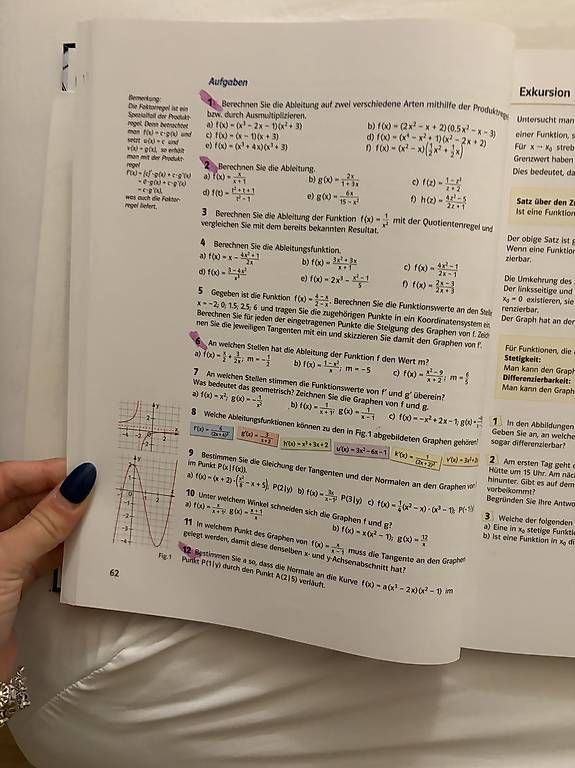 Aufgaben
Bemerkung:
Die Faktorregel ist ein
Spezialfall der Produkt-
regel. Denn betrachtet
man f(x) = c·g(x) und
setzt u(x) = c und
v(x) = g(x), so erhält
man mit der Produkt-
regel
f'(x) = [c]'·g(x) + c·g'(x)
= 0·g(x) + c·g'(x)
= c·g'(x),
was auch die Faktor-
regel liefert.
1 Berechnen Sie die Ableitung auf zwei verschiedene Arten mithilfe der Produktrege
bzw. durch Ausmultiplizieren.
a) f(x) = (x³ − 2x − 1)(x² + 3) b) f(x) = (2x² − x + 2)(0,5x² − x − 3)
c) f(x) = (x − 1)(x + 3) d) f(x) = (x⁴ − x² + 1)(x² − 2x + 2)
e) f(x) = (x³ + 4x)(x³ + 3) f) f(x) = (x² − x)(½x² + ½x)
2 Berechnen Sie die Ableitung.
a) f(x) = x/(x+1) b) g(x) = 2x/(1+3x) c) f(z) = (1−z²)/(z+2)
d) f(t) = (t²+t+1)/(t²−1) e) g(x) = 6x/(15−x²) f) h(z) = (4z²−5)/(2z+1)
3 Berechnen Sie die Ableitung der Funktion f(x) = 1/x² mit der Quotientenregel und
vergleichen Sie mit dem bereits bekannten Resultat.
4 Berechnen Sie die Ableitungsfunktion.
a) f(x) = x − (4x²+1)/2x b) f(x) = (3x²+3x)/(x+1) c) f(x) = (4x²−1)/(2x−1)
d) f(x) = (3−4x²)/x³ e) f(x) = 2x³ − (x²−1)/5 f) f(x) = (2x−3)/(2x+3)
5 Gegeben ist die Funktion f(x) = Berechnen Sie die Funktionswerte an den Stelle
x = −2; 0; 1,5; 2,5; 6 und tragen Sie die zugehörigen Punkte in ein Koordinatensystem ein.
Berechnen Sie für jeden der eingetragenen Punkte die Steigung des Graphen von f. Zeich
nen Sie die jeweiligen Tangenten mit ein und skizzieren Sie damit den Graphen von f.
6 An welchen Stellen hat die Ableitung der Funktion f den Wert m?
a) f(x) = m = −½ b) f(x) = (1−x²)/x; m = −5 c) f(x) = (x²−9)/(x+2); m = 6/5
7 An welchen Stellen stimmen die Funktionswerte von f' und g' überein?
Was bedeutet das geometrisch? Zeichnen Sie die Graphen von f und g.
a) f(x) = x²; g(x) = −1/x² b) f(x) = 1/(x+1); g(x) = 1/(x−1) c) f(x) = −x² + 2x − 1; g(x) =
8 Welche Ableitungsfunktionen können zu den in Fig. 1 abgebildeten Graphen gehören
f'(x) = 6/(2x+4)² g'(x) = 3/(x+2) h'(x) = x³ + 3x + 2 u'(x) = 3x² − 6x − 1 k'(x) = 1/(2x+2)² v'(x) = 3x² +
9 Bestimmen Sie die Gleichung der Tangenten und der Normalen an den Graphen von
im Punkt P(x|f(x)).
a) f(x) = (x + 2)·(x²/8 − x + 5); P(2|y) b) f(x) = 3x/(x−1); P(3|y) c) f(x) = ¼(x² − x)·(x³ − 1); P(−1|
10 Unter welchem Winkel schneiden sich die Graphen f und g?
a) f(x) = x/(x+1); g(x) = (x−1)/x b) f(x) = x(x² − 1); g(x) = 12/x
11 In welchem Punkt des Graphen von f(x) = x/(x−1) muss die Tangente an den Graphen
gelegt werden, damit diese denselben x- und y-Achsenabschnitt hat?
12 Bestimmen Sie a so, dass die Normale an die Kurve f(x) = a(x³ − 2x)(x² − 1) im
Punkt P(1|y) durch den Punkt A(2|5) verläuft.
Fig. 1
62
Exkursion
Untersucht man
einer Funktion, s
Für x → x₀ streb
Grenzwert haben
Dies bedeutet, da
Satz über den Zu
Ist eine Funktion
Der obige Satz ist g
Wenn eine Funktion
zierbar.
Die Umkehrung des
Der linksseitige und
x₀ = 0 existieren, sie
renzierbar.
Der Graph hat an der
Für Funktionen, die
Stetigkeit:
Man kann den Graph
Differenzierbarkeit:
Man kann den Graph
1 In den Abbildungen
Geben Sie an, an welche
sogar differenzierbar?
2 Am ersten Tag geht e
Hütte um 15 Uhr. Am näch
hinunter. Gibt es auf dem
vorbeikommt?
Begründen Sie Ihre Antwo
3 Welche der folgenden
a) Eine in x₀ stetige Funktio
b) Ist eine Funktion in x₀ di